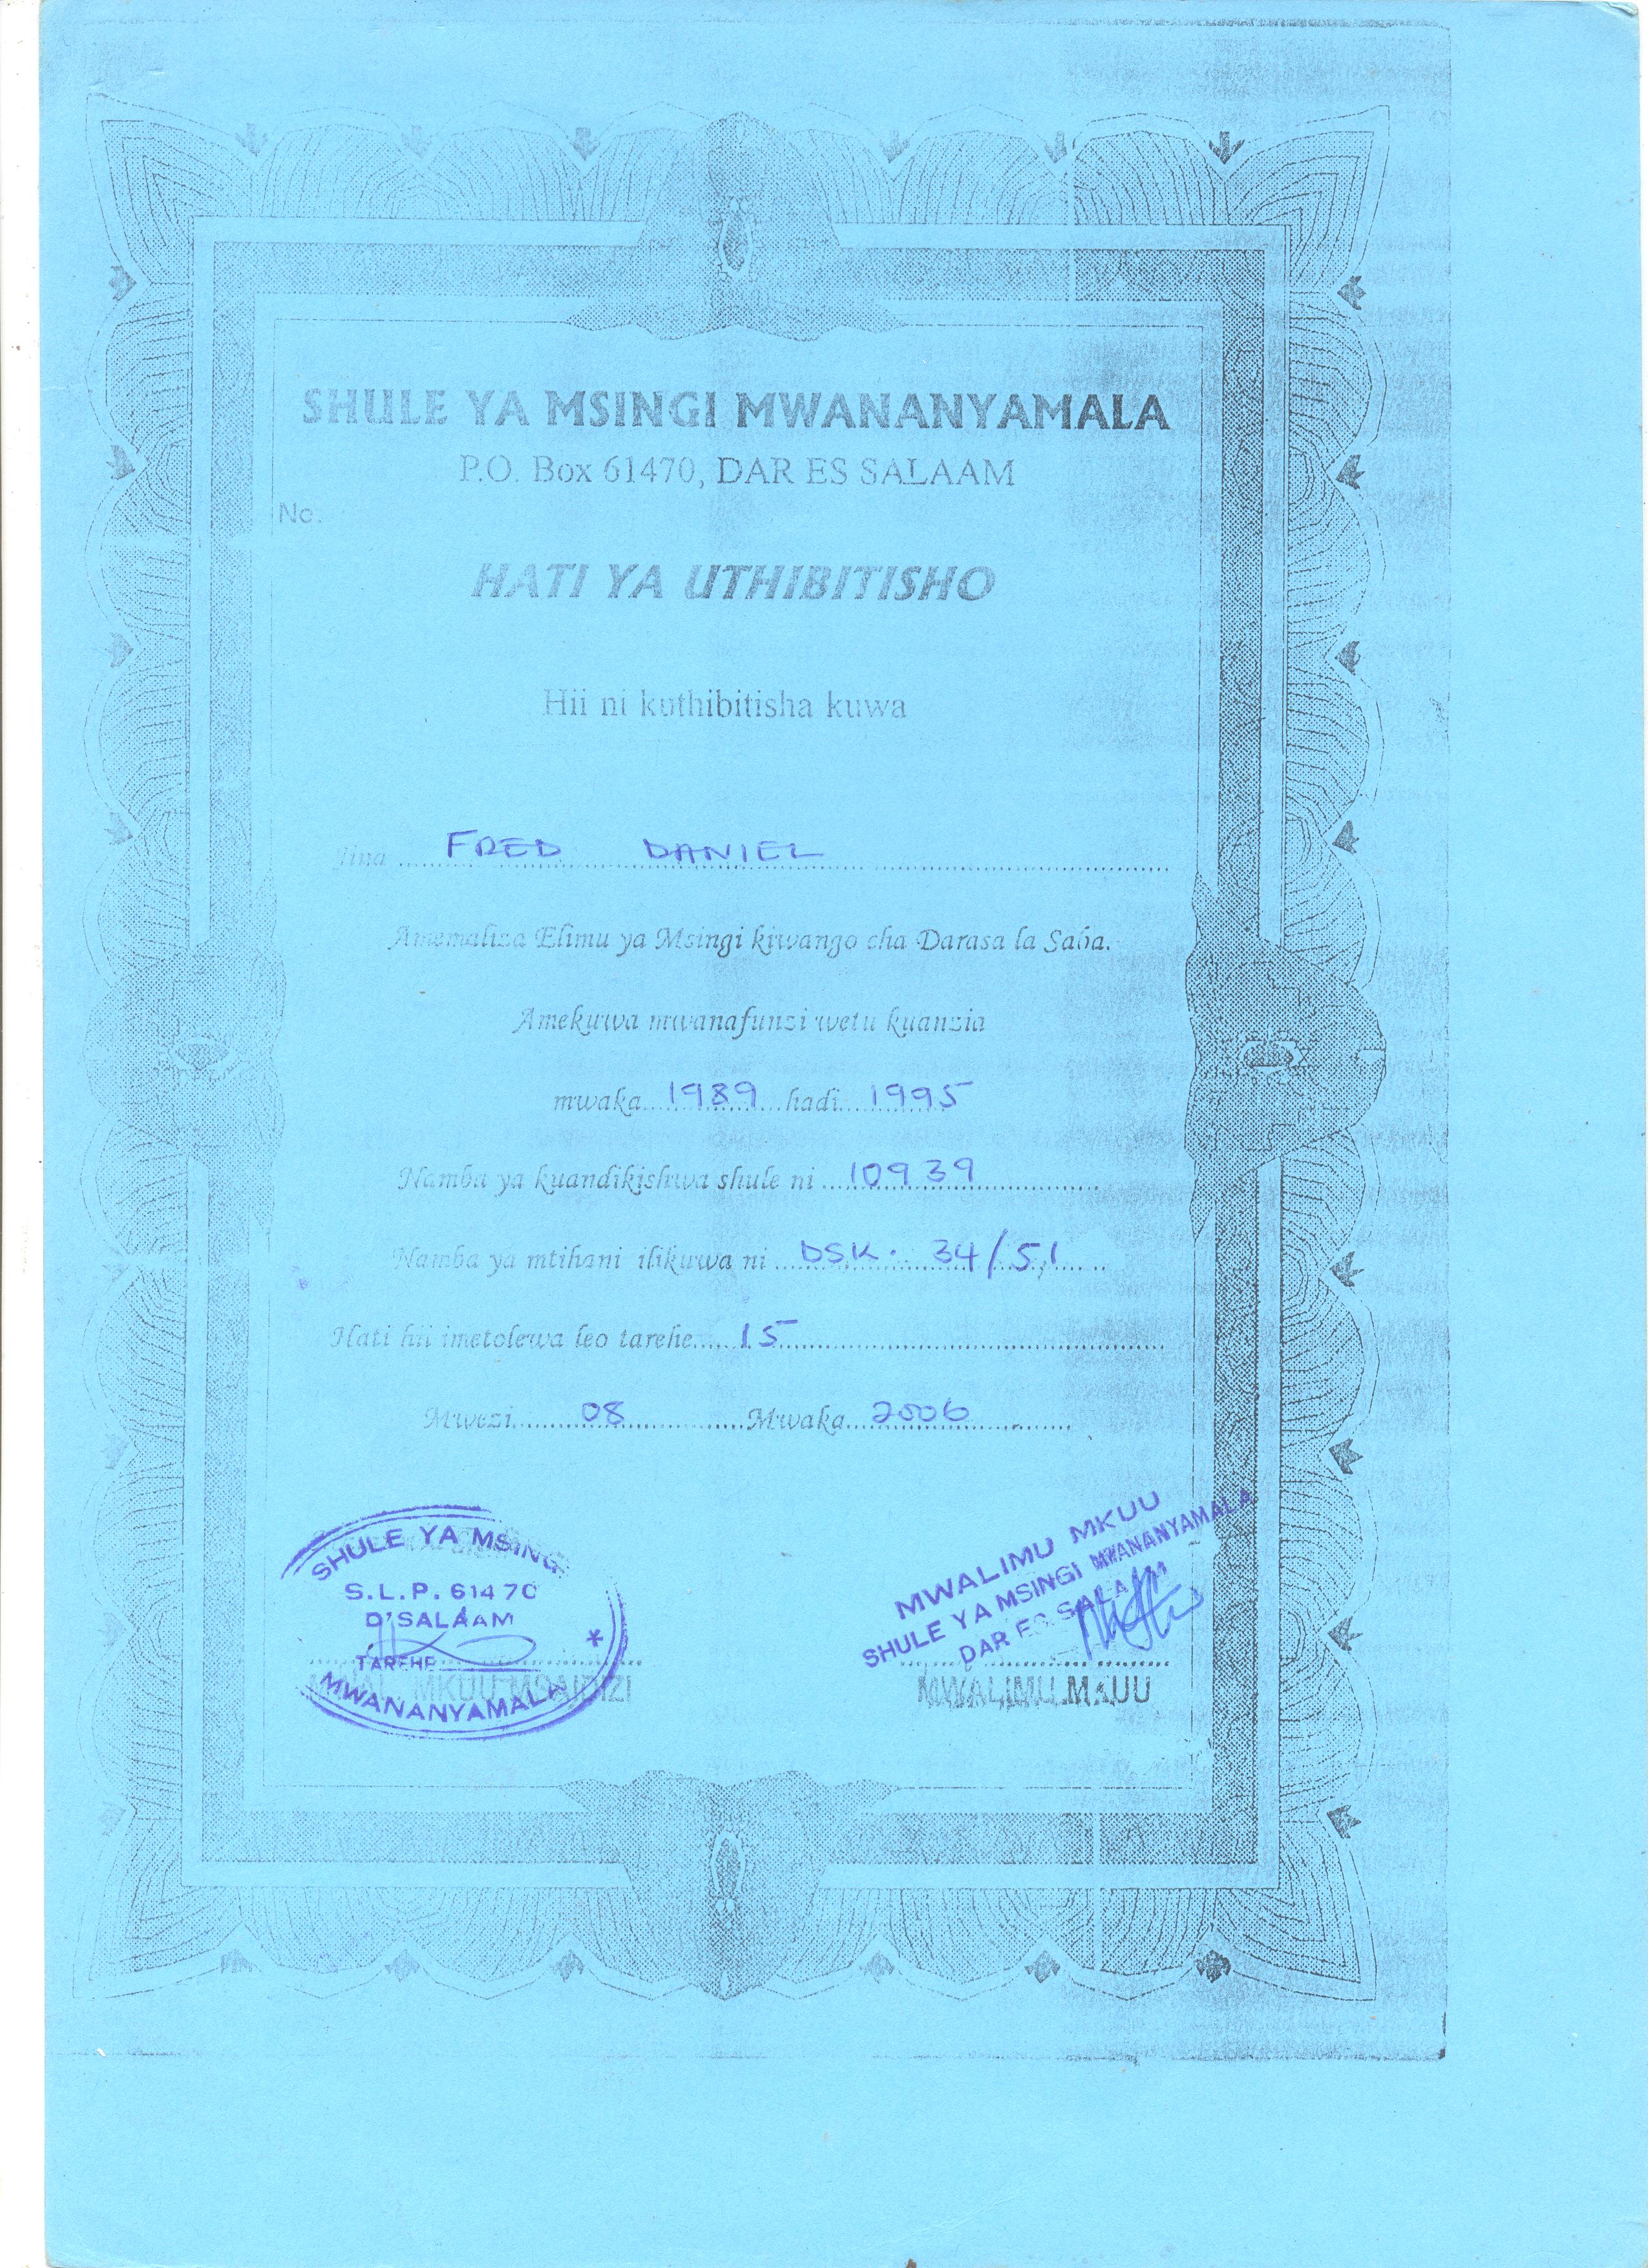 SHULE YA MSINGI MWANANYAMALA
P.O. Box 61470, DAR ES SALAAM
No.
HATI YA UTHIBITISHO
Hii ni kuthibitisha kuwa
Jina ...... FRED DANIEL ......
Amemaliza Elimu ya Msingi kiwango cha Darasa la Saba.
Amekuwa mwanafunzi wetu kuanzia
mwaka 1989 hadi 1995
Namba ya kuandikishwa shule ni 10939
Namba ya mtihani ilikuwa ni DSK. 34/51
Hati hii imetolewa leo tarehe 15
Mwezi 08 Mwaka 2006
SHULE YA MSINGI
S.L.P. 61470
D'SALAAM
TAREHE
MWANANYAMALA
MWAL. MKUU MSAIDIZI
MWALIMU MKUU
SHULE YA MSINGI MWANANYAMALA
DAR ES SALAAM
MWALIMU MKUU